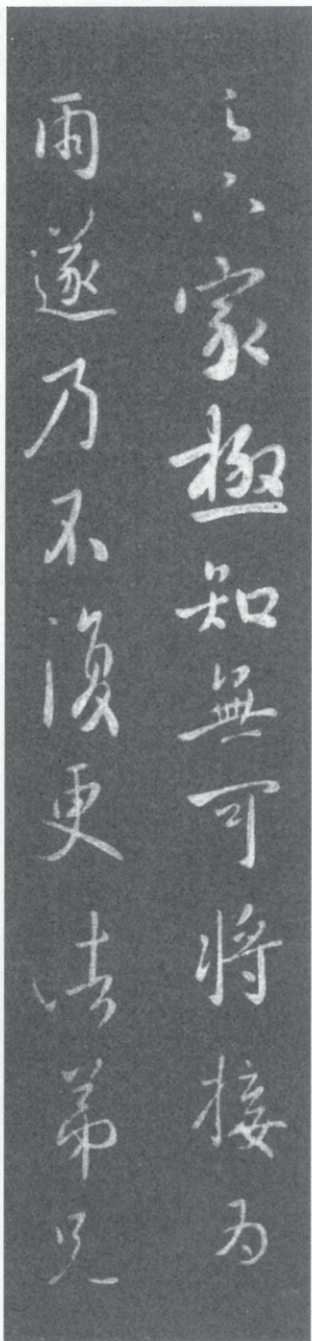 足下家極知無可將接為
雨遂乃不復更諸弟兄